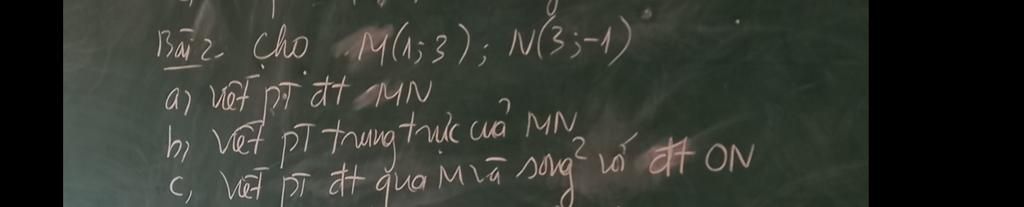 Bài 2. Cho M(1;3); N(3;-1)
a) Viết pT đt MN
b) Viết pT trung trực của MN
c, Viết pT đt qua M và song² với đt ON